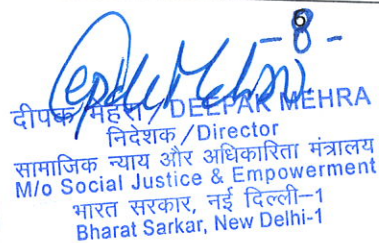 -8-
दीपक मेहरा / DEEPAK MEHRA
निदेशक / Director
सामाजिक न्याय और अधिकारिता मंत्रालय
M/o Social Justice & Empowerment
भारत सरकार, नई दिल्ली-1
Bharat Sarkar, New Delhi-1